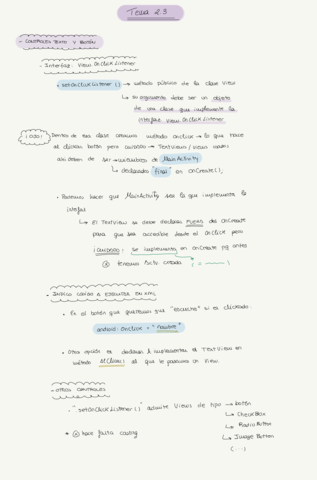 Tema 2.3
- CONTROLES TEXTO Y BOTÓN
- Interfaz: View.OnClickListener
• setOnClickListener () → método público de la clase View
↳ su argumento debe ser un objeto
de una clase que implemente la
interfaz View.OnClickListener
Dentro de esa clase creamos método onClick → lo que hace
al clickar botón pero cuidado → TextView / views usados
ahí deben de ser → atributos de MainActivity
↳ declarados "final" en onCreate();
• Podemos hacer que MainActivity sea la que implemente la
interfaz
↳ El TextView se debe declarar FUERA del onCreate
para que sea accesible desde el onClick pero
¡CUIDADO! se implementa en onCreate pq antes
tenemos
- INDICO CÓDIGO A EJECUTAR EN XML
• Es al botón que queremos que "escuche" si es clickado.
android: onClick = "nombre"
• Otra opción es declarar e implementar el TextView en
método al que le pasamos un View.
- OTROS CONTROLES
• ".setOnClickListener()" admite Views de tipo → botón
↳ CheckBox
↳ RadioButton
↳ Image Button
(...)
* hace falta casting